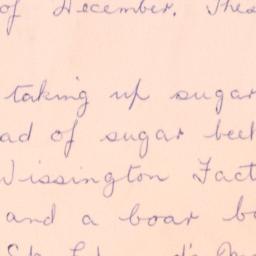 of December. Thes
taking up sugar
ad of sugar beet
Wissington Fact
and a boar b